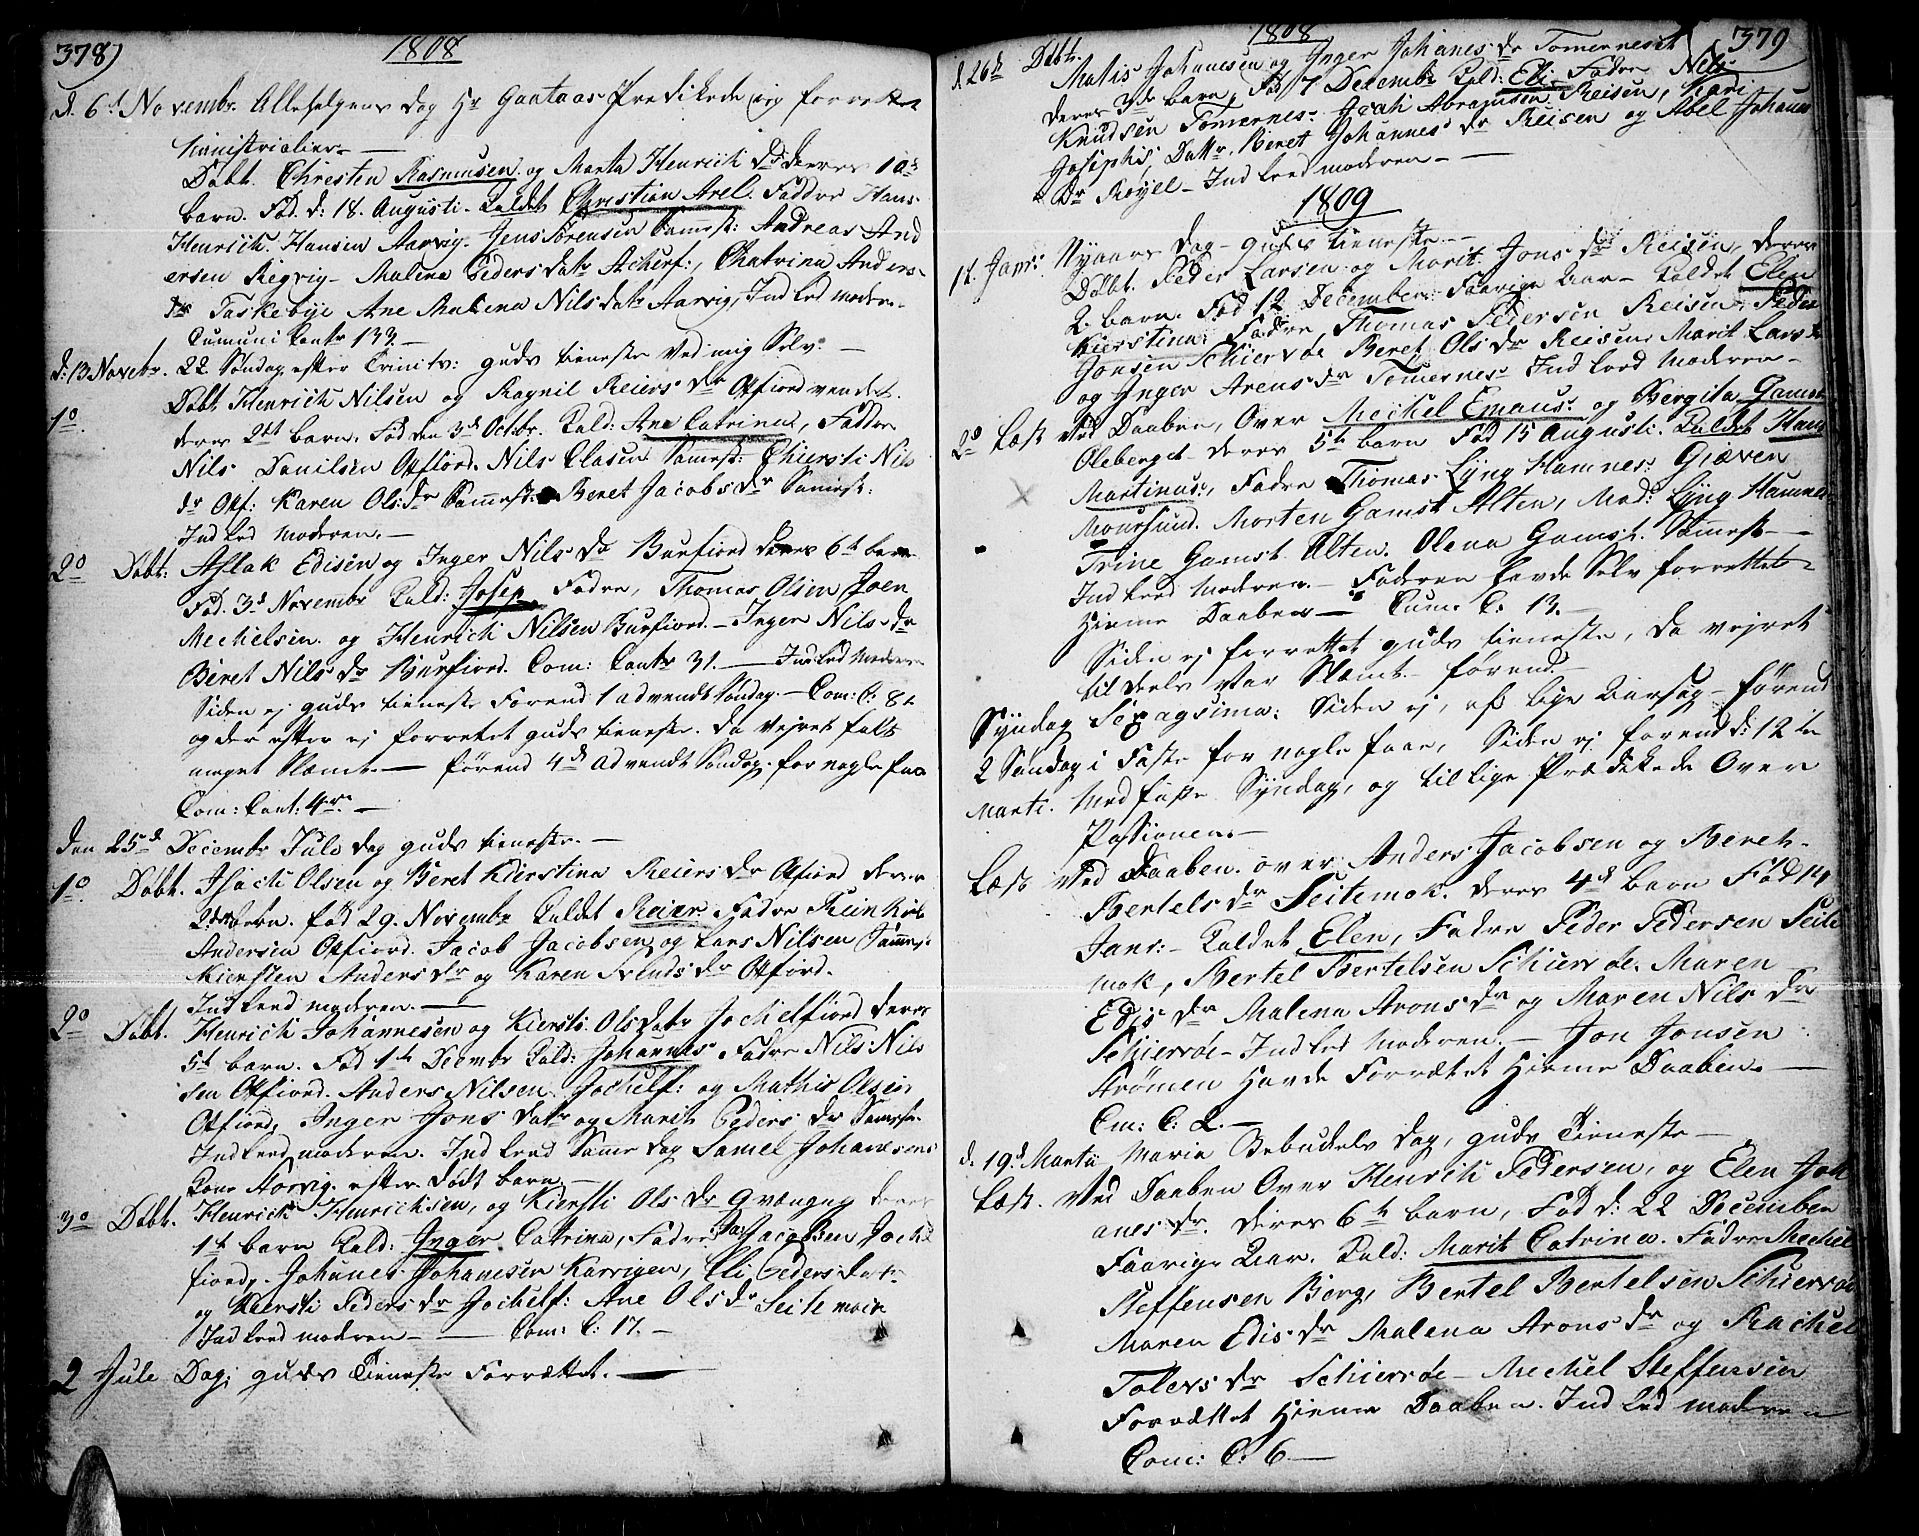 378)
1808
d. 6t Novembr. Allehelgens Dag Hr Gaataas Prædikede og forrettet
Ministrialier. —
Døbt. Christen Rasmusen og Marta Henrich Dr deres 10de
barn. Fød. d: 18. Augusti. Kaldet Christian Arel. Faddre Hans
Henrich Hansen Aarvig. Jens Sørensen Samest: Andreas And
ersen Regvig — Malena Peders datr Acherf:, Chatrina Anders
dr Taskebye Ane Malena Nils datr Aarvig, Ind Led Moder.
Cumuni Cantr 133. —
d: 13 Novebr. 22 Søndag efter Trinits: guds tieneste Ved mig Selv. —
1o. Døbt Henrich Nilsen og Ragnil Reiers dr Oxfiord vendet.
deres 2det barn. Fød den 3d Octobr. Kald: Ane Catrina, Faddre
Nils Danilsen Oxfiord. Nils Clasen Samest: Chiersti Nils
dr Oxf: Karen Ols: dr Samest: Beret Jacobs dr Samest:
Ind Led Moderen. —
2o Døbt: Aslak Edisen og Inger Nils dr Burfiord deres 6t barn
Fød. 3d Novembr Kald: Josep Fadre, Thomas Olsen Joen
Mechelsen og Henrich Nilsen Burfiord. — Inger Nils dr
Beret Nils dr Burfiord. Com: Cantr 31. — Ind Led Moderen
Siden ej guds tieneste Forend 1 advendt Søndag. — Com: C: 82
og der efter ej forrettet guds tieneste. da Vejret falt
meget Slæmt. — førend 4d Advendt Søndag. for nogle faa
Com: Cant: 4re. —
den 25d Decembr Jule dag guds tieneste. —
1o. Døbt. Isach Olsen og Beret Kierstina Reiers dr Oxfiord deres
2det barn. fød 29. Novembr Kaldet Reier Fadre
Andersen Oxfiord. Jacob Jacobsen og Lars Nilsen Samest:
Kiersten Anders dr og Karen dr Oxfiord.
Ind Leed moderen. —
2o Døbt. Henrich Johannesen og Kiersti Ols datr Jochelfiord deres
5t barn. Fød 1t Decmbr Kald: Johannes Fadre Nils Nils
sen Oxfiord. Anders Nilsen Jochelf: og Mathis Olsen
Oxfiord, Inger Jons datr og Marith Peders dr Samest.
Ind Leed moderen. Ind Leed Samme dag Samel Johannesens
Kone Aarvig. efter dødt barn —
3o Døbt. Henrich Henrichsen, og Kiersti Ols dr Qvænang deres
1t barn Kald: Inger Catrina, Fadre Jacobsen Jochel
fiord, Johanes Johanesen Karvigen, Eli Peders datr
og Kiersti Peders dr Jochelf: Ane Ols dr Seitemock
Ind Leed moderen — — Com: C: 17. —
2 Jule Dag; guds Tieneste Forrættet. —
1808
379
d. 26d Døbt. Matis Johanesen og Inger Johanes dr Tømernes
deres 3de barn, Fød 7 Decembr Kald: Eli Fadre Nels
Knudsen Tømernes: Abramsen Reisen, Kari
Josephs; Dattr. Beret Johannes dr Reisen og Abel Johann
dr Røyel — Ind Leed moderen — —
1809
1t. Janr: Nyaars dag — guds tieneste. —
Døbt. Peder Larsen og Marit Jons dr Reisen, deres
2. barn. Fød 12 December Faarige Aar — Kaldet Elen
Kierstina; Fadre Thomas Pedersen Reisen, Peder
Jonsen Schierrøe Beret Ols dr Reisen Marit Lars dr
og Inger Arens dr Tømernes. Ind Leed Moderen —
2o Læst Ved Daaben, Over Mechel Emaus og Bergita Gamst
Oleberget deres 5te barn Fød 15 Augusti. Kaldet Hans
Martinus, Fadre Thomas Lyng Hamnes: Giæven
Moursund. Morten Gamst Alten, Mad: Lyng Hamnes
Trine Gamst Alten. Olena Gamst. Samest —
Ind Leed Moderen. — Faderen havde Selv forrettet
Hieme Daaben — Cum. C. 13. —
Siden ej forrettet guds tieneste, da vejret
til deels var Slæmt forend —
Syndag Sexagsima: Siden ej, af lige Aarsag — førend
2 Søndag i Faste for nogle faae, Siden ej forend d: 12 te
Marti. Med faste Syndag, og tillige Prædikede Over
Passionen. —
Læst Ved Daaben over Anders Jacobsen og Beret
Bertels dr Seitemok. deres 4d barn Fød 14
Janr: — Kaldet Elen, Fadre Peder Pedersen Seite
mok, Bertel Bertelsen Schierrøe. Maren
Edis dr Malena Arons dr og Maren Nils dr
Schierrøe — Ind Led Moderen. — Jon Jonsen
Strømen Havde Forrættet Hieme Daaben. —
Cm: C: 2. —
d. 19d Martii Maria Bebudels dag, guds Tieneste —
Læst. Ved Daaben Over Henrich Pedersen, og Elen Joh
anes dr. deres 6te barn, Fød d: 22 December
Faarige Aar. Kald: Marit Catrina. Fadre Mechel
Steffensen Berg, Bertel Bertelsen Schierrøe
Maren Edis dr Malena Arons dr og Rachel
Tolevs dr Schierrøe — Mechel Steffensen
Forrættet Hieme Daaben. Ind Led moderen
Com: C: 6. —